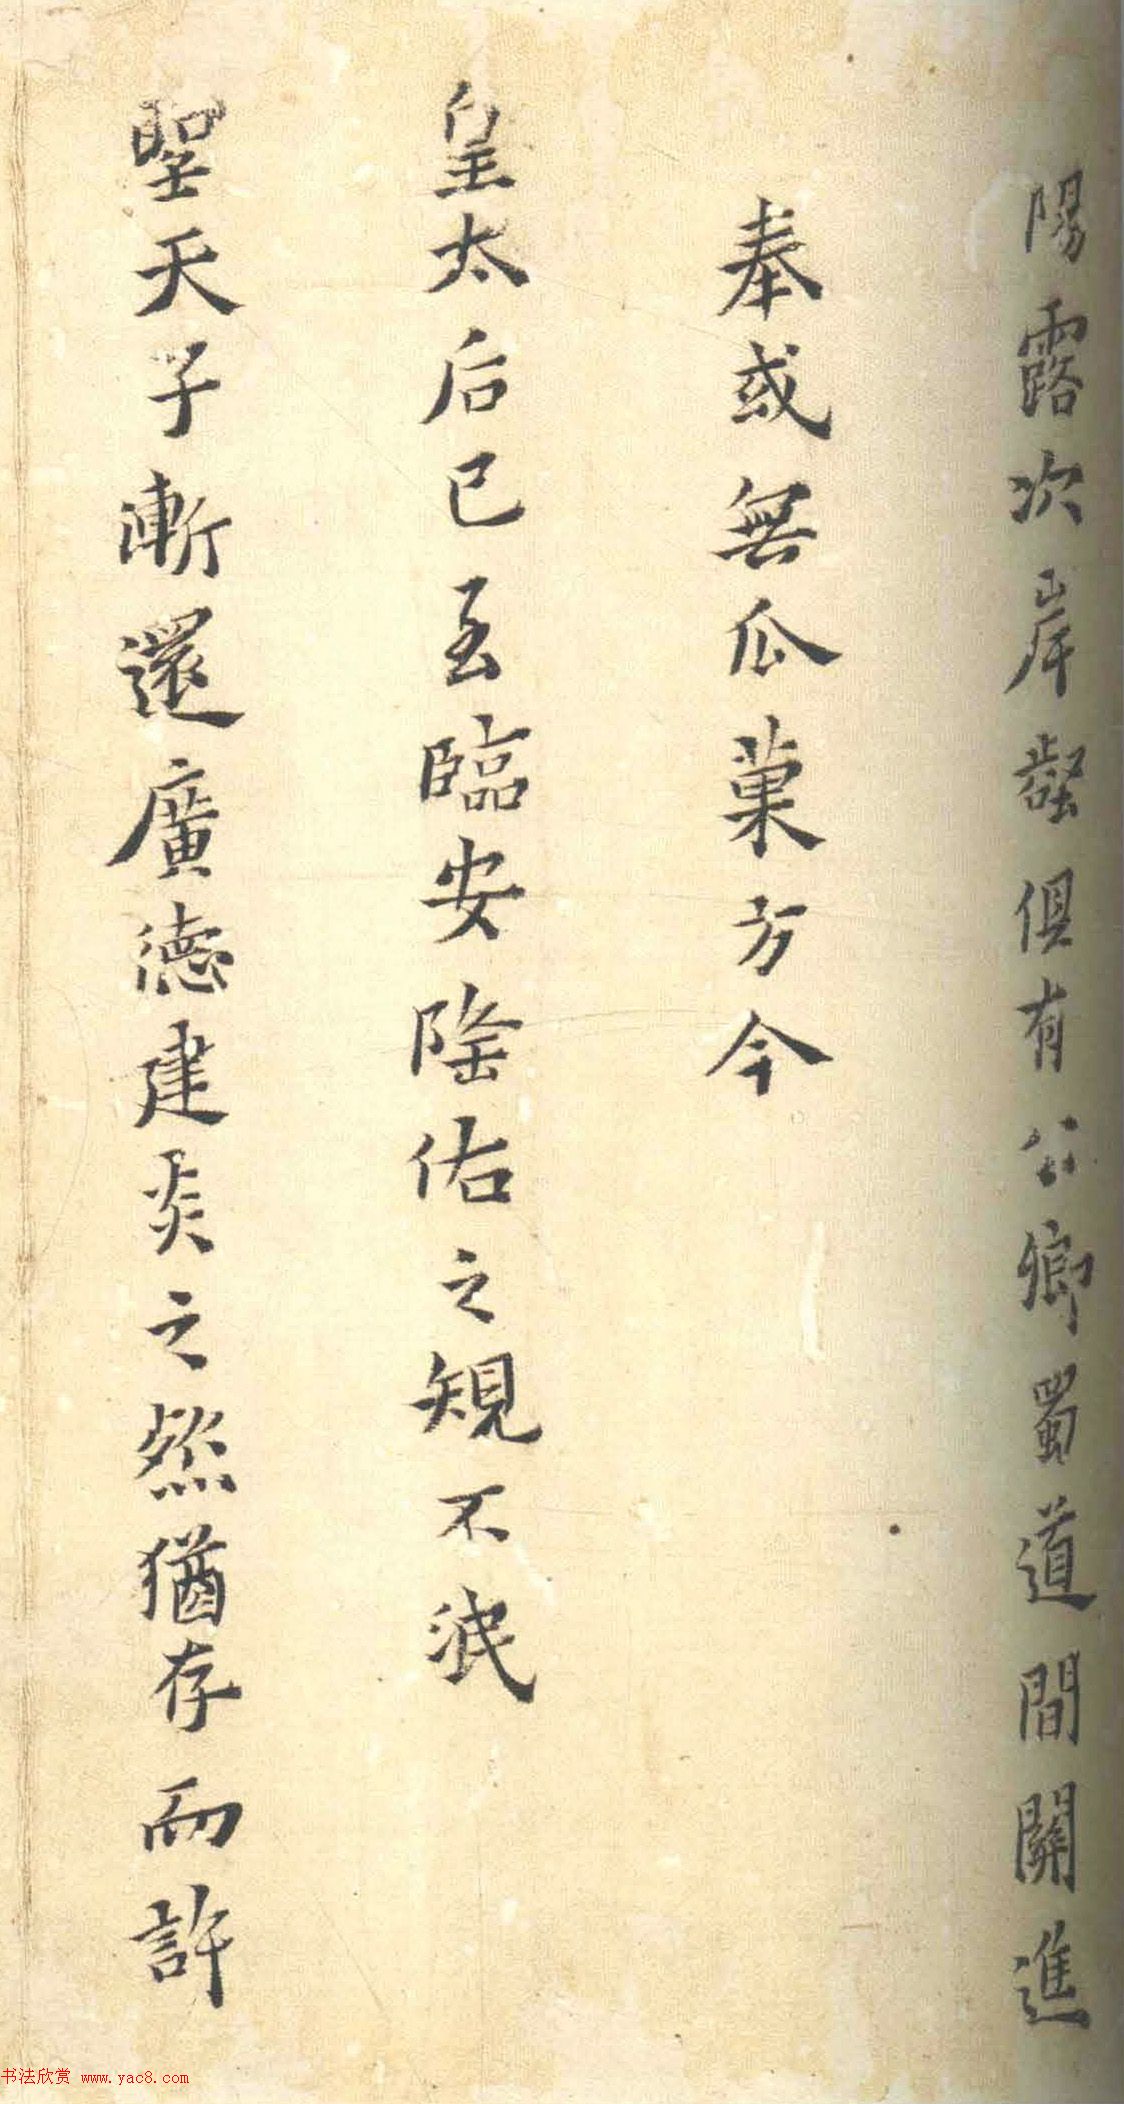 陽露次岸壑俱有公卿蜀道間關進
奉或無瓜菓方今
皇太后已至臨安隆佑之規不泯
聖天子漸還廣德建炎之然猶存而許
书法欣赏 www.yac8.com